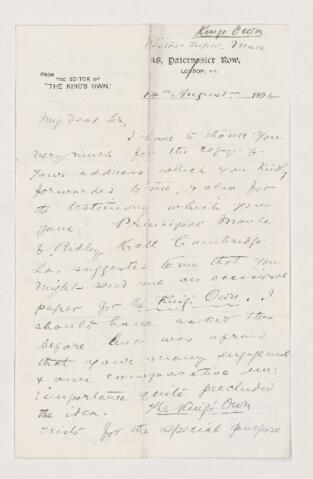 King's Own
48, Paternoster Row,
LONDON, E.C.
FROM
THE EDITOR OF
"THE KING'S OWN."
14th August 1896
My Dear Sir,
I have to thank you
very much for the copy of
your address which you kindly
forwarded to me, & also for
the testimony which you
gave. Principal Moule
of Ridley Hall Cambridge
has suggested to me that you
might send me an occasional
paper for the King's Own. I
should have asked this
before but was afraid
that your many engagements
& our comparative un-
importance quite precluded
the idea. The King's Own
exists for the special purpose